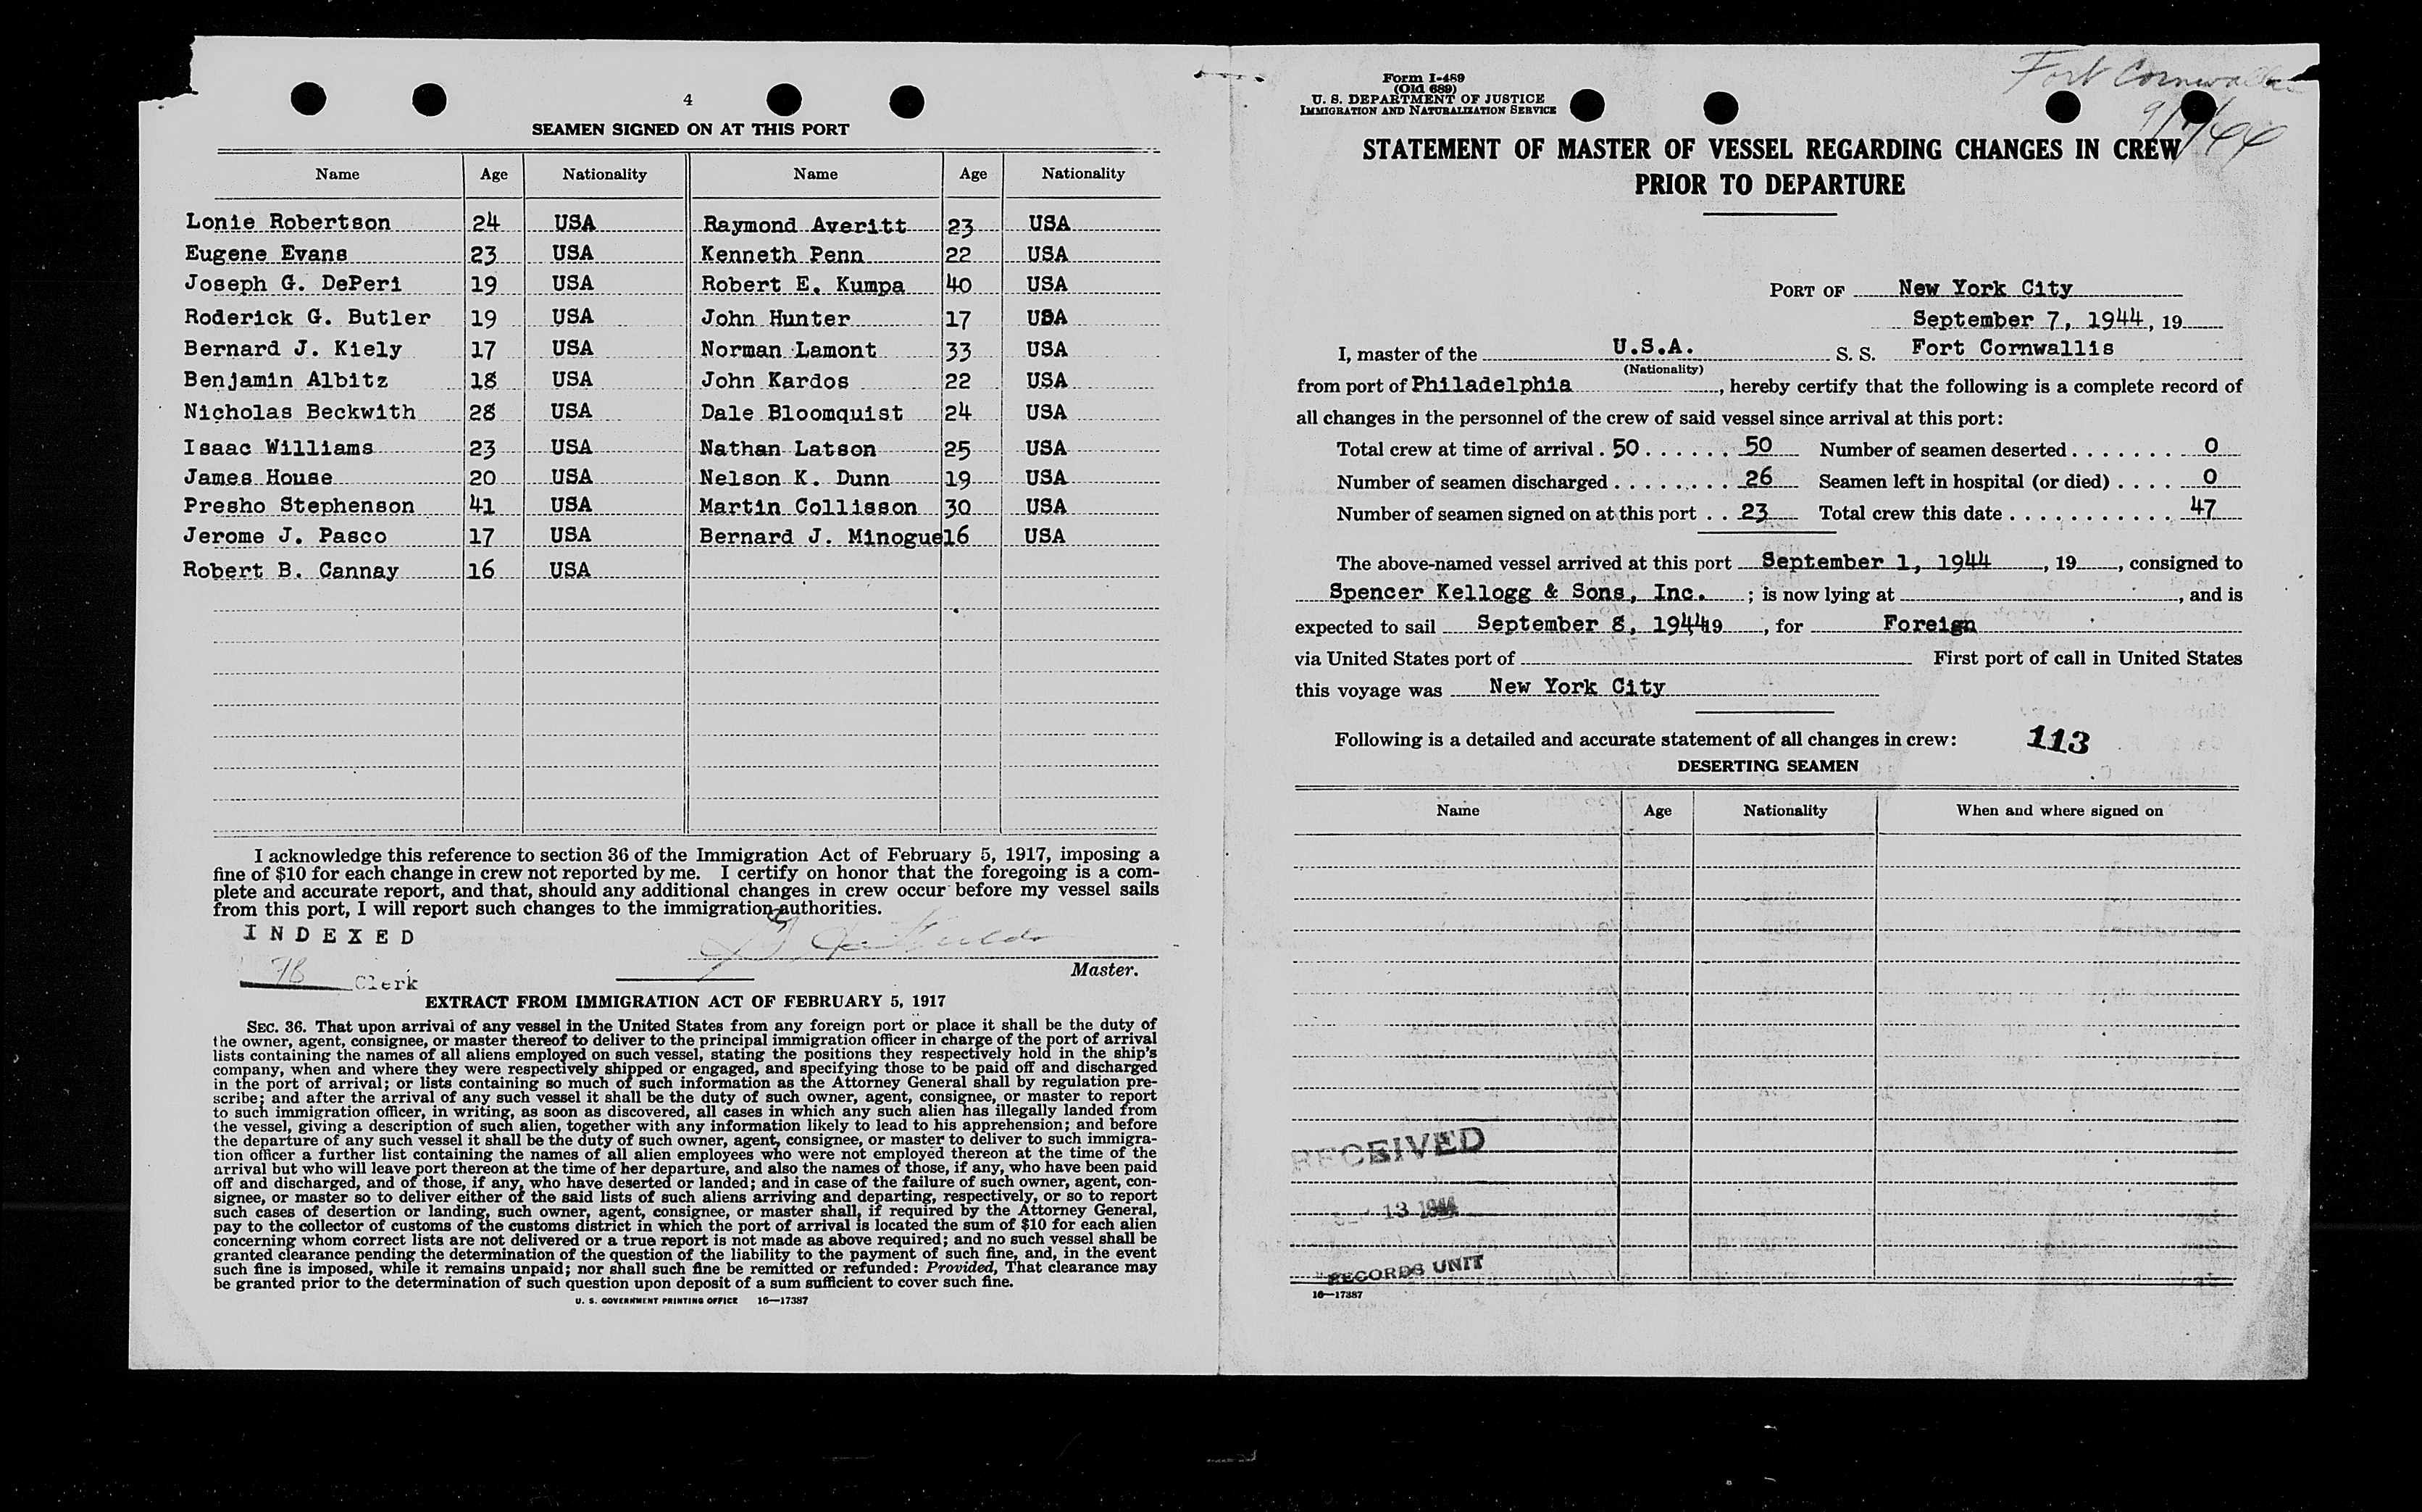 4
SEAMEN SIGNED ON AT THIS PORT
Name Age Nationality Name Age Nationality
Lonie Robertson 24 USA Raymond Averitt 23 USA
Eugene Evans 23 USA Kenneth Penn 22 USA
Joseph G. DePeri 19 USA Robert E. Kumpa 40 USA
Roderick G. Butler 19 USA John Hunter 17 USA
Bernard J. Kiely 17 USA Norman Lamont 33 USA
Benjamin Albitz 18 USA John Kardos 22 USA
Nicholas Beckwith 28 USA Dale Bloomquist 24 USA
Isaac Williams 23 USA Nathan Latson 25 USA
James House 20 USA Nelson K. Dunn 19 USA
Presho Stephenson 41 USA Martin Collisson 30 USA
Jerome J. Pasco 17 USA Bernard J. Minogue 16 USA
Robert B. Cannay 16 USA
I acknowledge this reference to section 36 of the Immigration Act of February 5, 1917, imposing a
fine of $10 for each change in crew not reported by me. I certify on honor that the foregoing is a com-
plete and accurate report, and that, should any additional changes in crew occur before my vessel sails
from this port, I will report such changes to the immigration authorities.
INDEXED
Clerk
Master.
EXTRACT FROM IMMIGRATION ACT OF FEBRUARY 5, 1917
SEC. 36. That upon arrival of any vessel in the United States from any foreign port or place it shall be the duty of
the owner, agent, consignee, or master thereof to deliver to the principal immigration officer in charge of the port of arrival
lists containing the names of all aliens employed on such vessel, stating the positions they respectively hold in the ship's
company, when and where they were respectively shipped or engaged, and specifying those to be paid off and discharged
in the port of arrival; or lists containing so much of such information as the Attorney General shall by regulation pre-
scribe; and after the arrival of any such vessel it shall be the duty of such owner, agent, consignee, or master to report
to such immigration officer, in writing, as soon as discovered, all cases in which any such alien has illegally landed from
the vessel, giving a description of such alien, together with any information likely to lead to his apprehension; and before
the departure of any such vessel it shall be the duty of such owner, agent, consignee, or master to deliver to such immigra-
tion officer a further list containing the names of all alien employees who were not employed thereon at the time of the
arrival but who will leave port thereon at the time of her departure, and also the names of those, if any, who have been paid
off and discharged, and of those, if any, who have deserted or landed; and in case of the failure of such owner, agent, con-
signee, or master so to deliver either of the said lists of such aliens arriving and departing, respectively, or so to report
such cases of desertion or landing, such owner, agent, consignee, or master shall, if required by the Attorney General,
pay to the collector of customs of the customs district in which the port of arrival is located the sum of $10 for each alien
concerning whom correct lists are not delivered or a true report is not made as above required; and no such vessel shall be
granted clearance pending the determination of the question of the liability to the payment of such fine, and, in the event
such fine is imposed, while it remains unpaid; nor shall such fine be remitted or refunded: Provided, That clearance may
be granted prior to the determination of such question upon deposit of a sum sufficient to cover such fine.
U. S. GOVERNMENT PRINTING OFFICE 16—17387
Form I-489
(Old 689)
U. S. DEPARTMENT OF JUSTICE
IMMIGRATION AND NATURALIZATION SERVICE
Fort Cornwallis
STATEMENT OF MASTER OF VESSEL REGARDING CHANGES IN CREW
PRIOR TO DEPARTURE
PORT OF New York City
September 7, 1944, 19
I, master of the U.S.A. S. S. Fort Cornwallis
(Nationality)
from port of Philadelphia, hereby certify that the following is a complete record of
all changes in the personnel of the crew of said vessel since arrival at this port:
Total crew at time of arrival . 50 . . . . . . 50 Number of seamen deserted . . . . . . . 0
Number of seamen discharged . . . . . . . . 26 Seamen left in hospital (or died) . . . . 0
Number of seamen signed on at this port . . 23 Total crew this date . . . . . . . . . . . . 47
The above-named vessel arrived at this port September 1, 1944, 19, consigned to
Spencer Kellogg & Sons, Inc. ; is now lying at , and is
expected to sail September 8, 1944 19, for Foreign
via United States port of First port of call in United States
this voyage was New York City
Following is a detailed and accurate statement of all changes in crew: 113
DESERTING SEAMEN
Name Age Nationality When and where signed on
RECEIVED
13 1944
RECORDS UNIT
16—17387